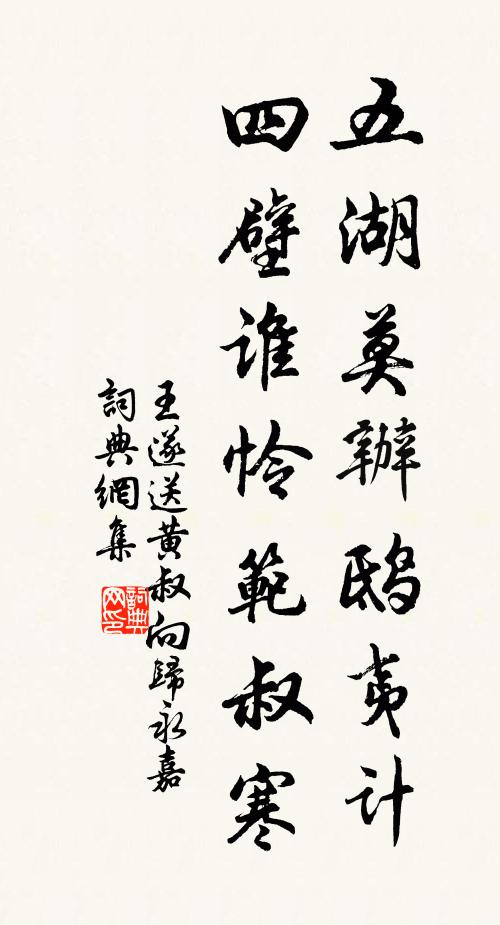 五湖莫辦鴟夷計
四壁谁怜範叔寒
王遂送黄叔向歸永嘉
詞典網集
詞典网印